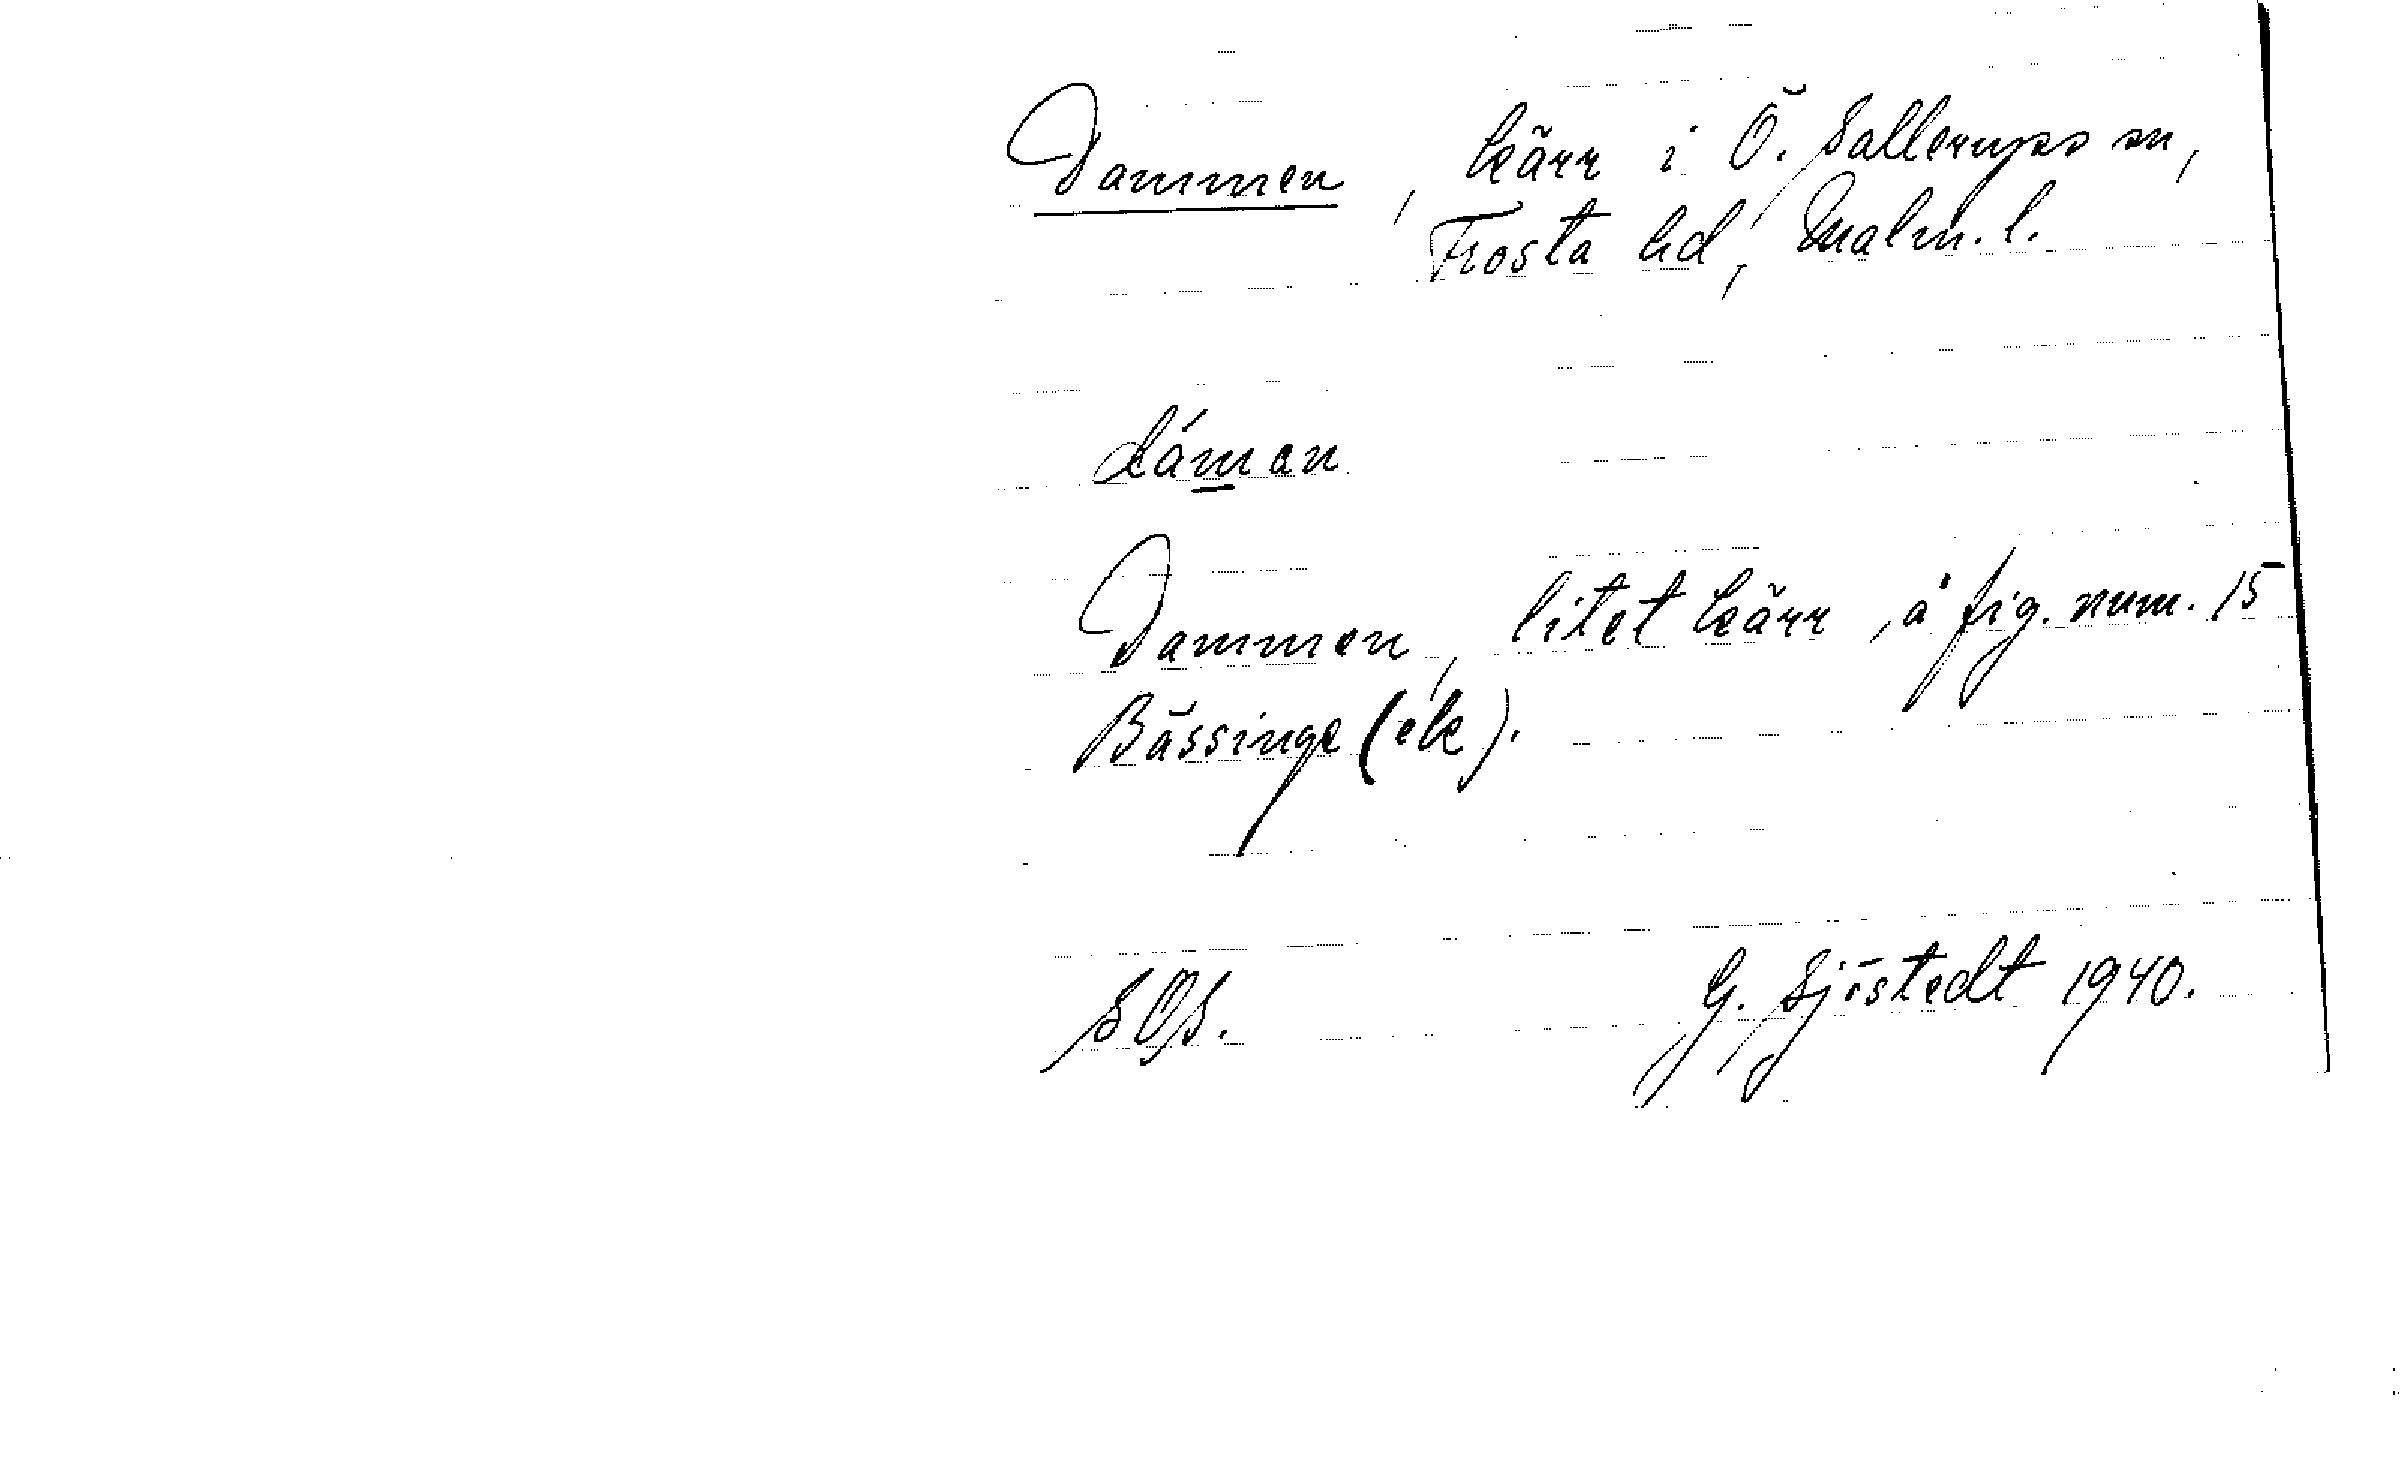 Dammen, kärr i Ö. Sallerups sn,
Frosta hd, Malm. l.
dáman
Dammen, litet kärr, å fig. num. 15
Bässinge (ek).
SOS.
G. Sjöstedt 1940.